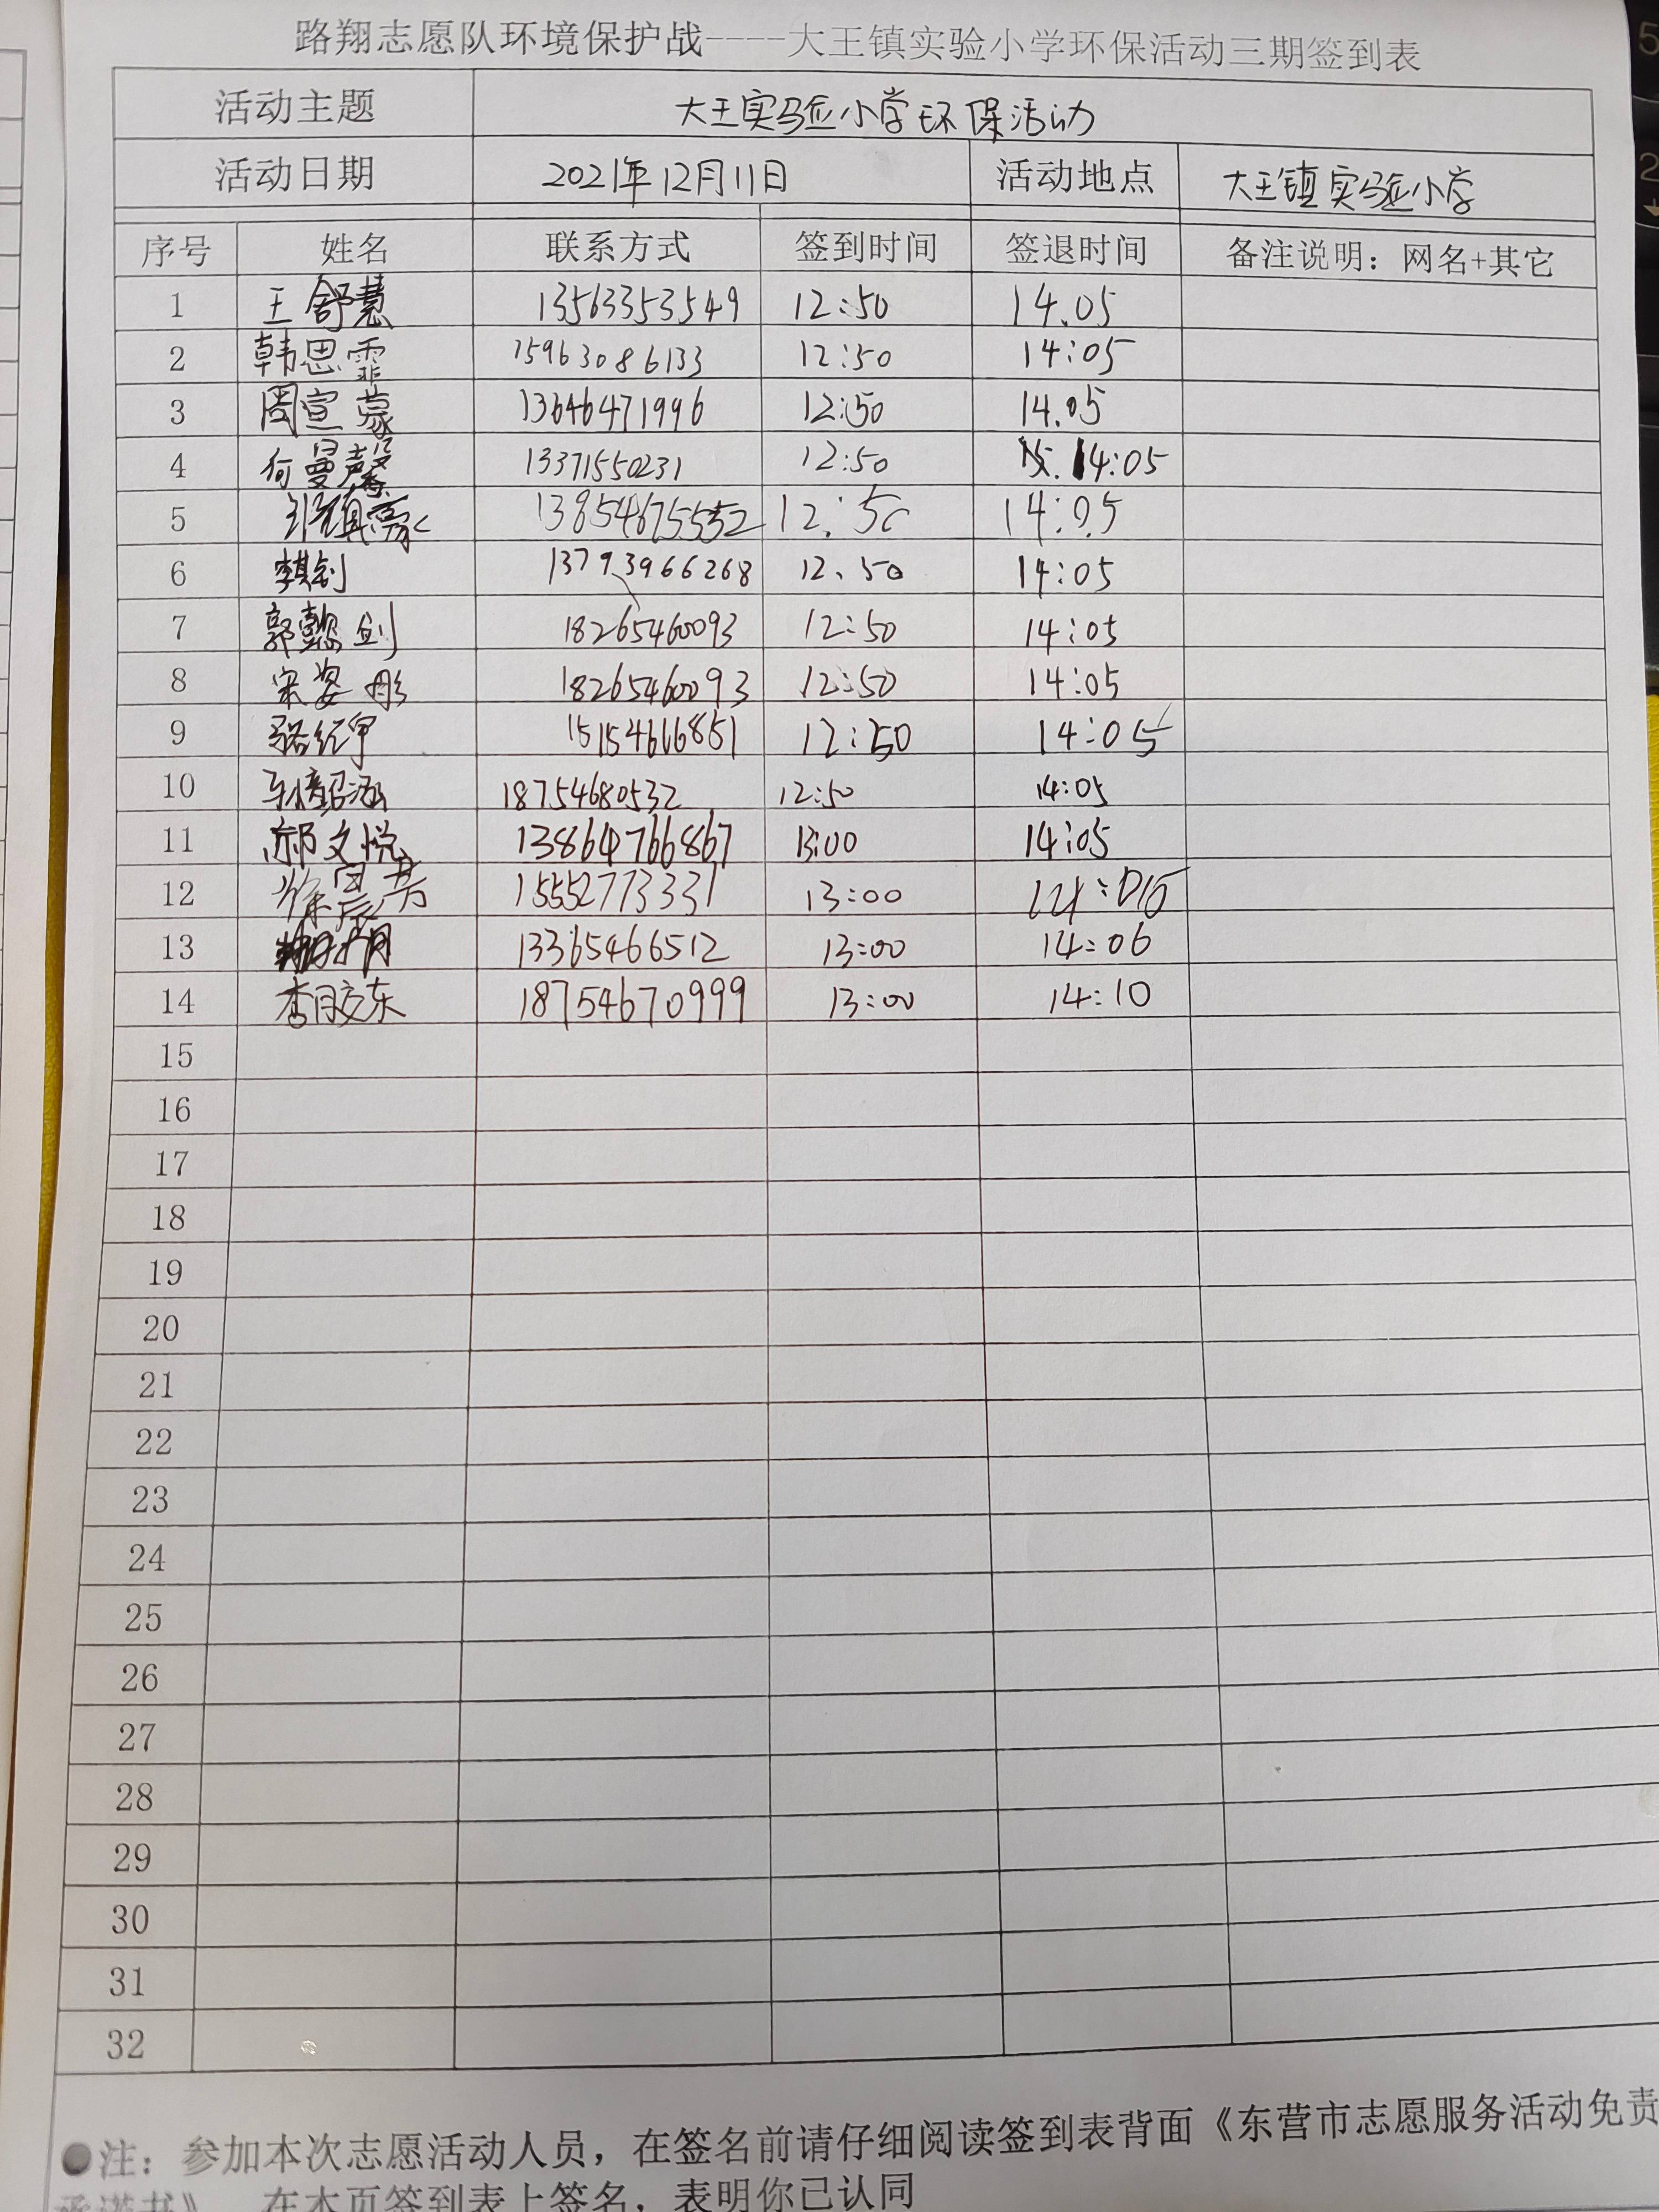 路翔志愿队环境保护战----大王镇实验小学环保活动三期签到表
活动主题 大王实验小学环保活动
活动日期 2021年12月11日 活动地点 大王镇实验小学
序号 姓名 联系方式 签到时间 签退时间 备注说明：网名+其它
1 王舒慧 13563353549 12:50 14.05
2 韩思霏 15963086133 12:50 14:05
3 周宣蒙 13646471996 12:50 14.05
4 何曼馨 13371550231 12:50 14:05
5 13854675552 12:50 14:05
6 13793966268 12.50 14:05
7 郭懿剑 18265460093 12:50 14:05
8 宋姿彤 18265460093 12:50 14:05
9 骆纪甲 15154666851 12:50 14:05
10 18754680532 12:50 14:05
11 文悦 13864766867 13:00 14:05
12 徐 15552773331 13:00 14:05
13 13365466512 13:00 14:06
14 李胶东 18754670999 13:00 14:10
15
16
17
18
19
20
21
22
23
24
25
26
27
28
29
30
31
32
●注：参加本次志愿活动人员，在签名前请仔细阅读签到表背面《东营市志愿服务活动免责
承诺书》，在本页签到表上签名，表明你已认同